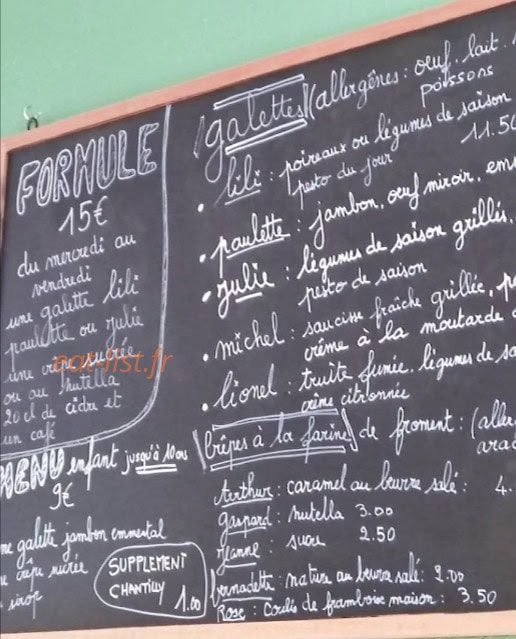 FORMULE
15€
du mercredi au
vendredi
une galette lili
paulette ou julie
une crêpe sucre
ou au nutella
20 cl de cidre et
un café
MENU enfant jusqu'à 10 ans
9€
ne galette jambon emmental
crêpe sucrée
sirop
SUPPLEMENT
CHANTILLY 1.00
galettes (allergênes : oeuf. lait.
poissons
• lili : poireaux ou légumes de saison
pesto du jour 11.50
• paulette : jambon, oeuf miroir, em
• julie : légumes de saison grillés,
pesto de saison
• michel : saucisse fraîche grillée,
crême à la moutarde
• lionel : truite fumée, légumes de sa
crême citronnée
Crêpes à la farine de froment : (aller
ara
Arthur : caramel au beurre salé : 4.
gaspard : nutella 3.00
jeanne : sucre 2.50
bernadette : nature au beurre salé : 2.00
Rose : Coulis de framboise maison : 3.50
eat-list.fr